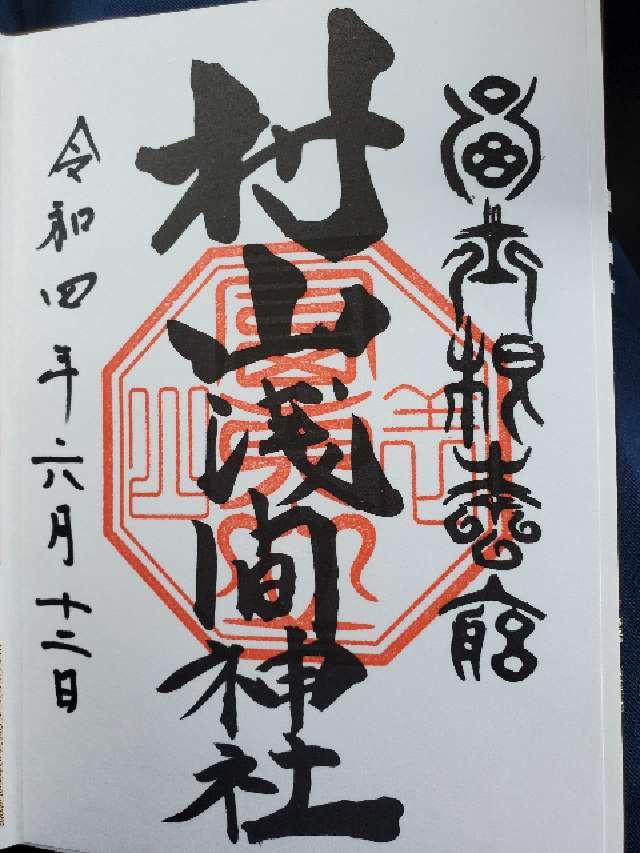 富士根本宮
村山浅間神社
令和四年六月十二日